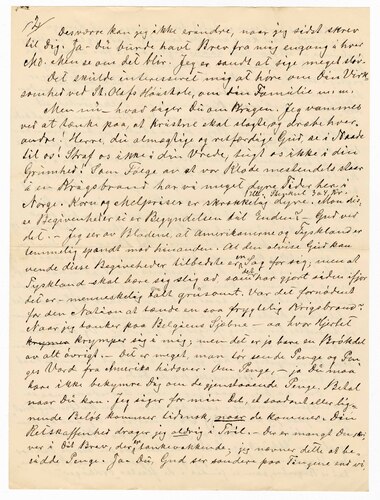 2/
Desværre kan jeg ikke erindre, naar jeg sidst skrev
til Dig. Ja – Du burde havt Brev fra mig engang i hver
Md. – men se om det blir. Jeg er sandt at sige meget sløv.
Det skulde interesseret mig at høre om Din Virk-
somhed ved St. Olafs Høiskole, om Din Familie m. m.
Men nu – hvad siger Du om Krigen. Jeg vammes
ved at tænke paa, at kristne skal slagte og dræbe hver-
andre! Herre, du almægtige og retfærdige Gud, se i Naade
til os! Straf os ikke i din Vrede, tugt os ikke i din
Grumhed! Som Følge av at vor Klode mestendels staar
i en Krigsbrand har vi meget dyre Tider her i
Norge. Korn og Melpriser er skrækkelig dyre. Mon dis-
se Begivenheder ei er Begyndelsen til Enden? – Gud ved
det. – Jeg ser av Bladene, at Amerikanerne og Tyskland er
temmelig spændt mod hinanden. At den alvise Gud kan
vende disse Begivenheder tilbedste en Dag for sig, men at
Tyskland skal bære sig slig ad, som det har gjort siden ifjor
det er – menneskelig talt grusomt. Var det fornødent
for den Nation at tænde en saa frygtelig Krigsbrand?
Naar jeg tænker paa Belgiens Skjebne – aa hvor Hjertet
krymper sig i mig; men det er jo bare en Brøkdel
av alt øvrigt. – Det er meget, man tør sende Penge og Pen-
ges Værd fra Amerika hidover. Om Penge, – ja Du maa
bare ikke bekymre Dig om de gjenstaaende Penge. Betal
naar Du kan. Jeg siger for min Del, et saadant eller lig-
nende Beløb kommer tidsnok, naar de kommer. Din
Retskaffenhed drager jeg aldrig i Tvil. – Der er mangt Du skri-
ver i Dit Brev, der er tankevækkende; jeg nævner dette at be-
sidde Penge. Ja Du, Gud ser sandere paa Tingene end vi